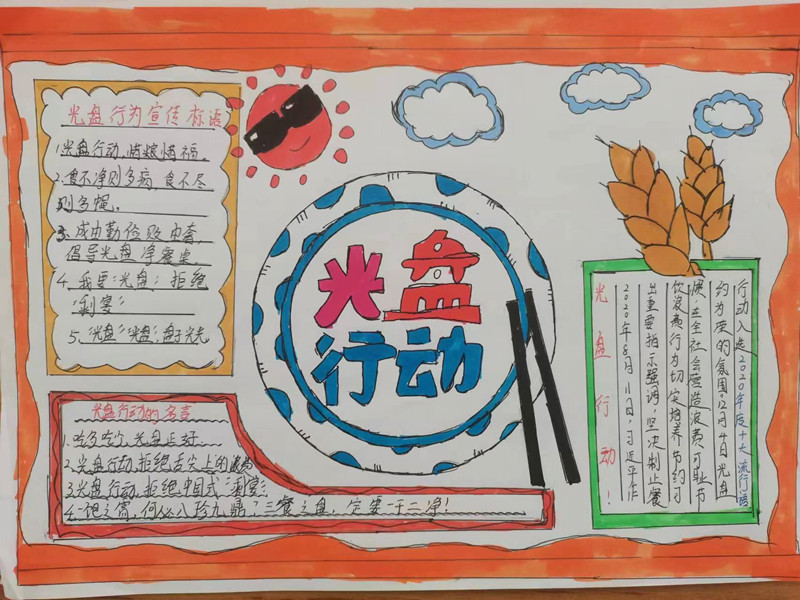 光盘行为宣传标语
1.光盘行动,惜粮惜福。
2.食不净则多病,食不尽
则多蝇。
3.成由勤俭败由奢,
倡导光盘净零桌。
4.我要"光盘";拒绝
"剩宴"
5."光盘""光盘",盘子光光
光盘
行动
光盘行动的名言
1.吃多吃少,光盘正好.
2.光盘行动,拒绝舌尖上的浪费
3.光盘行动,拒绝中国式"剩宴";
4.一饱之需,何必八珍九鼎?三餐之盘,定要一干二净!
光盘行动!
2020年8月11日,习近平作
出重要指示强调,坚决制止餐
饮浪费行为切实培养节约习
惯,在全社会营造浪费可耻节
约为荣的氛围,12月4日光盘
行动入选2020年度十大流行语